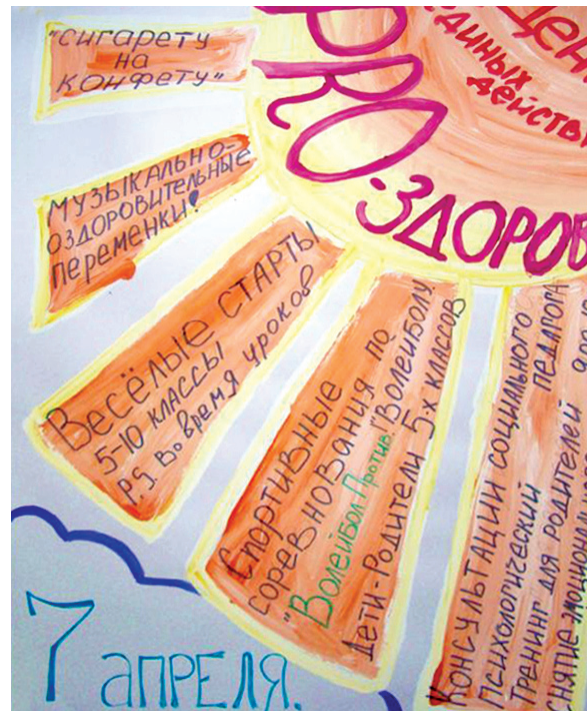 "СИГАРЕТУ
НА
КОНФЕТУ"
МУЗЫКАЛЬНО-
ОЗДОРОВИТЕЛЬНЫЕ
ПЕРЕМЕНКИ!
ВЕСЁЛЫЕ СТАРТЫ
5-10 КЛАССЫ
P.S. Во время уроков
Спортивные
соревнования по
"Волейбол Против" Волейболу
Дети-Родители 5-х классов
Консультации социального педагога
Психологический
тренинг для родителей
снятие
единых
действ
PRO-ЗДОРОВ
7 АПРЕЛЯ.